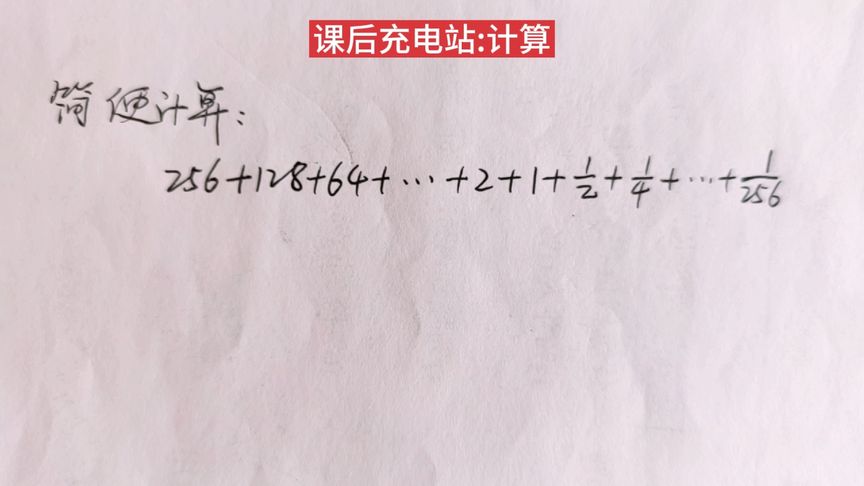 课后充电站:计算
简便计算:
256+128+64+⋯+2+1+1/2+1/4+⋯+1/256